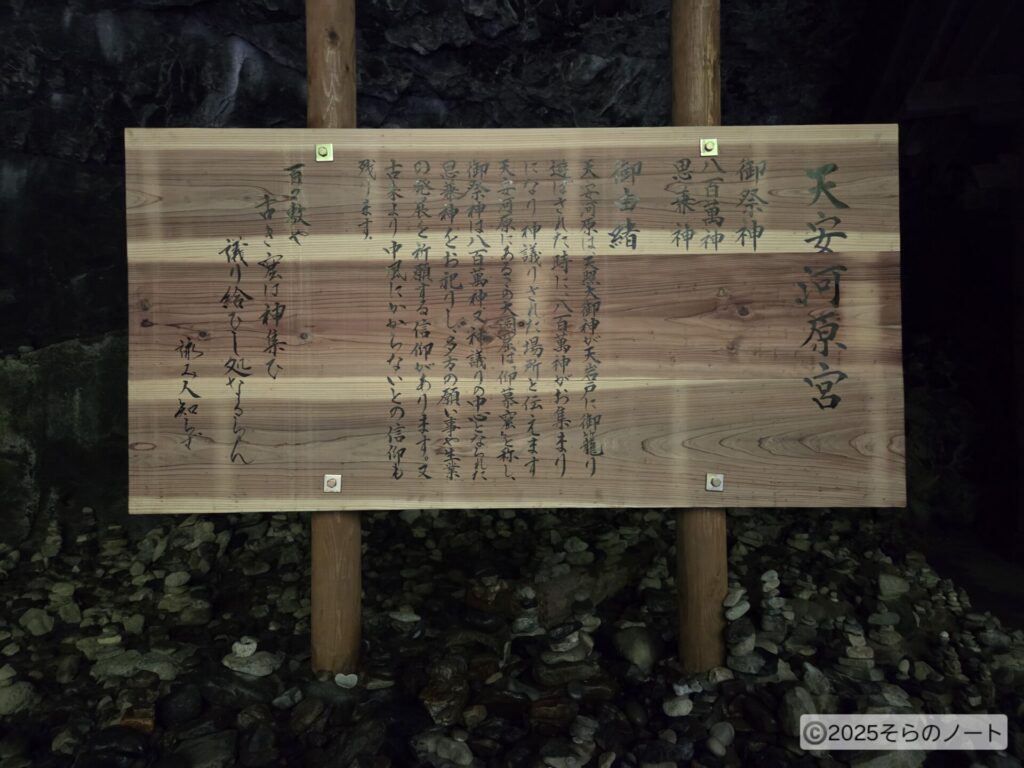 天安河原宮
御祭神
八百萬神
思兼神
御由緒
天安河原は天照大御神が天岩戸に御籠り
遊ばされた時に八百萬神がお集まり
になり神議りされた場所と伝えます
天安河原にあるこの大洞窟は仰慕窟と称し、
御祭神は八百萬神又神議りの中心となられた
思兼神をお祀りし、多方の願い事や生業
の発展を祈願する信仰があります。又
古来より中風にかからないとの信仰も
残ります。
百の敷や
古き窟は神集ひ
議り給ひし処なるらん
詠み人知らず
©2025そらのノート